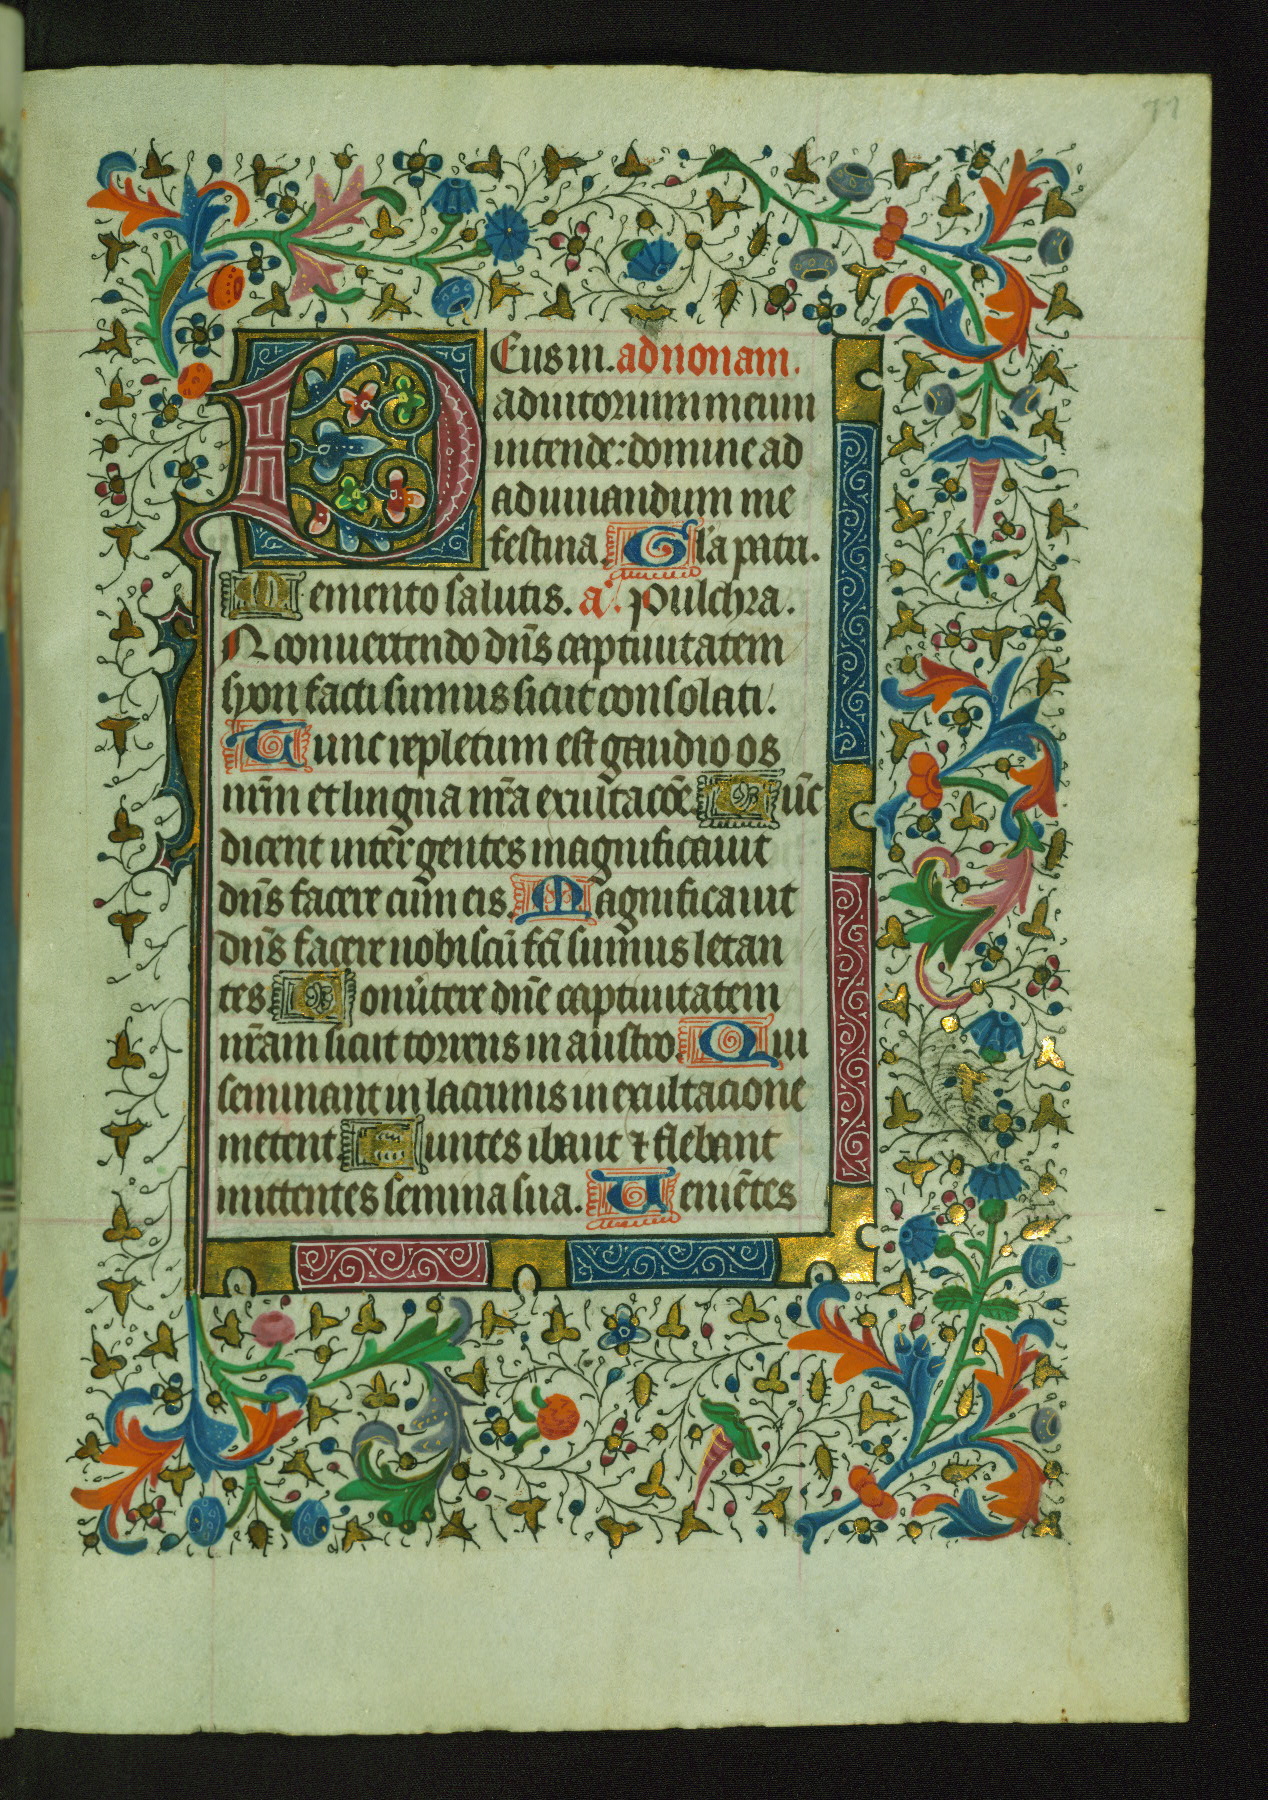 77
DEus in. ad nonam.
adiutorium meum
intende: domine ad
adiuuandum me
festina Gl'a patri.
Memento salutis. a'. Pulchra.
IN conuertendo dn̄s captiuitatem
syon facti sumus sicut consolati.
Tunc repletum est gaudio os
nr̄m et lingua nr̄a exultacōe Tūc
dicent inter gentes magnificauit
dn̄s facere cum eis Magnificauit
dn̄s facere nobiscū fc̄i sumus letan
tes Conūtere dn̄e captiuitatem
nr̄am sicut torrens in austro Qui
seminant in lacrimis in exultacione
metent Euntes ibant ⁊ flebant
mittentes semina sua. Ueniētes